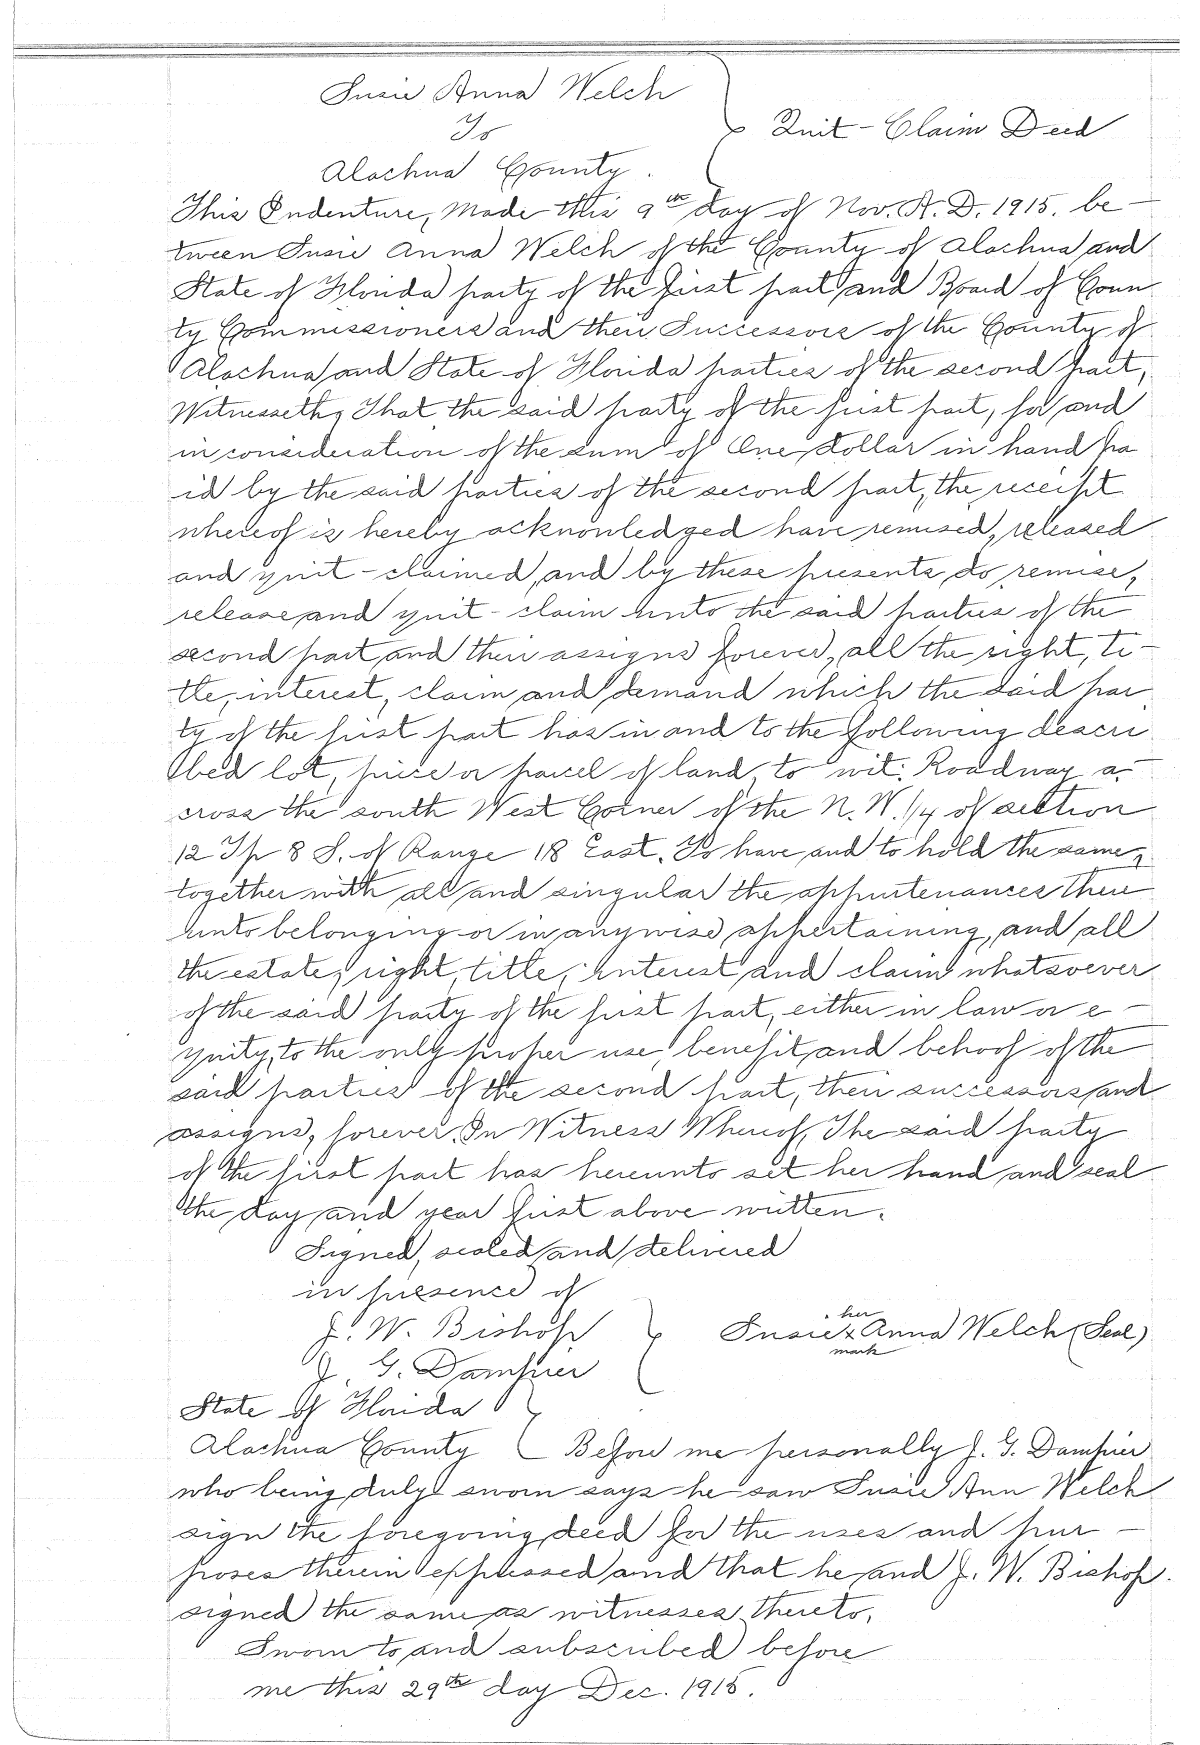 Susie Anna Welch
To
Quit-Claim Deed
Alachua County.
This Indenture, Made this 9th day of Nov. A. D. 1915, be-
tween Susie Anna Welch of the County of Alachua and
State of Florida party of the first part and Board of Coun
ty Commissioners and their Successors of the County of
Alachua and State of Florida parties of the second part,
Witnesseth, That the said party of the first part, for and
in consideration of the sum of One dollar in hand pa
id by the said parties of the second part, the receipt
whereof is hereby acknowledged have remised, released
and quit-claimed, and by these presents do remise,
release and quit-claim unto the said parties of the
second part and their assigns forever, all the right, ti-
tle, interest, claim and demand which the said par
ty of the first part has in and to the following descri
bed lot, piece or parcel of land, to wit: Roadway a-
cross the south West Corner of the N. W. 1/4 of section
12 Tp 8 S. of Range 18 East. To have and to hold the same,
together with all and singular the appurtenances there
unto belonging or in anywise appertaining, and all
the estate, right, title, interest and claim whatsoever
of the said party of the first part, either in law or e-
quity, to the only proper use, benefit and behoof of the
said parties of the second part, their successors and
assigns, forever. In Witness Whereof, The said party
of the first part has hereunto set her hand and seal
the day and year first above written.
Signed, sealed and delivered
in presence of
J. W. Bishop
her
Susie x Anna Welch (Seal)
mark
J. G. Dampier
State of Florida
Alachua County Before me personally J. G. Dampier
who being duly sworn says he saw Susie Ann Welch
sign the foregoing deed for the uses and pur-
poses therein expressed and that he and J. W. Bishop.
signed the same as witnesses thereto.
Sworn to and subscribed before
me this 29th day Dec. 1915.